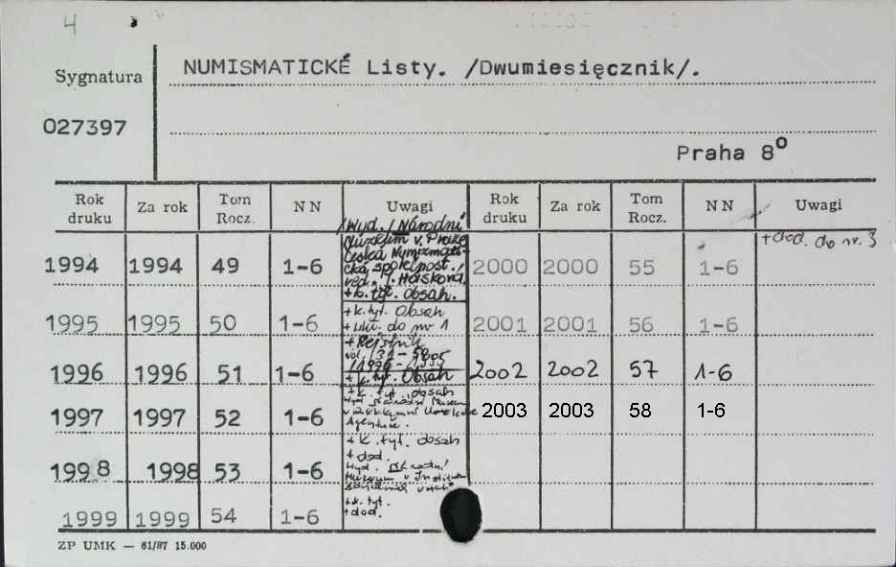 4
Sygnatura
NUMISMATICKÉ Listy. /Dwumiesięcznik/.
027397
Praha 8°
Rok druku Za rok Tom Rocz. NN Uwagi Rok druku Za rok Tom Rocz. NN Uwagi
/Wyd./ Národní
+dod. do nr. 3
1994 1994 49 1-6 2000 2000 55 1-6
+ k. tyt. Obsah.
+ k. tyt. Obsah
1995 1995 50 1-6 do nr 1 2001 2001 56 1-6
+ Rejstřík
1996 1996 51 1-6 + k. tyt. Obsah 2002 2002 57 1-6
+ k. tyt. obsah
1997 1997 52 1-6 2003 2003 58 1-6
+ k. tyt. obsah
+ dod.
1998 1998 53 1-6
+ k. tyt.
1999 1999 54 1-6 + dod.
ZP UMK — 61/87 15.000